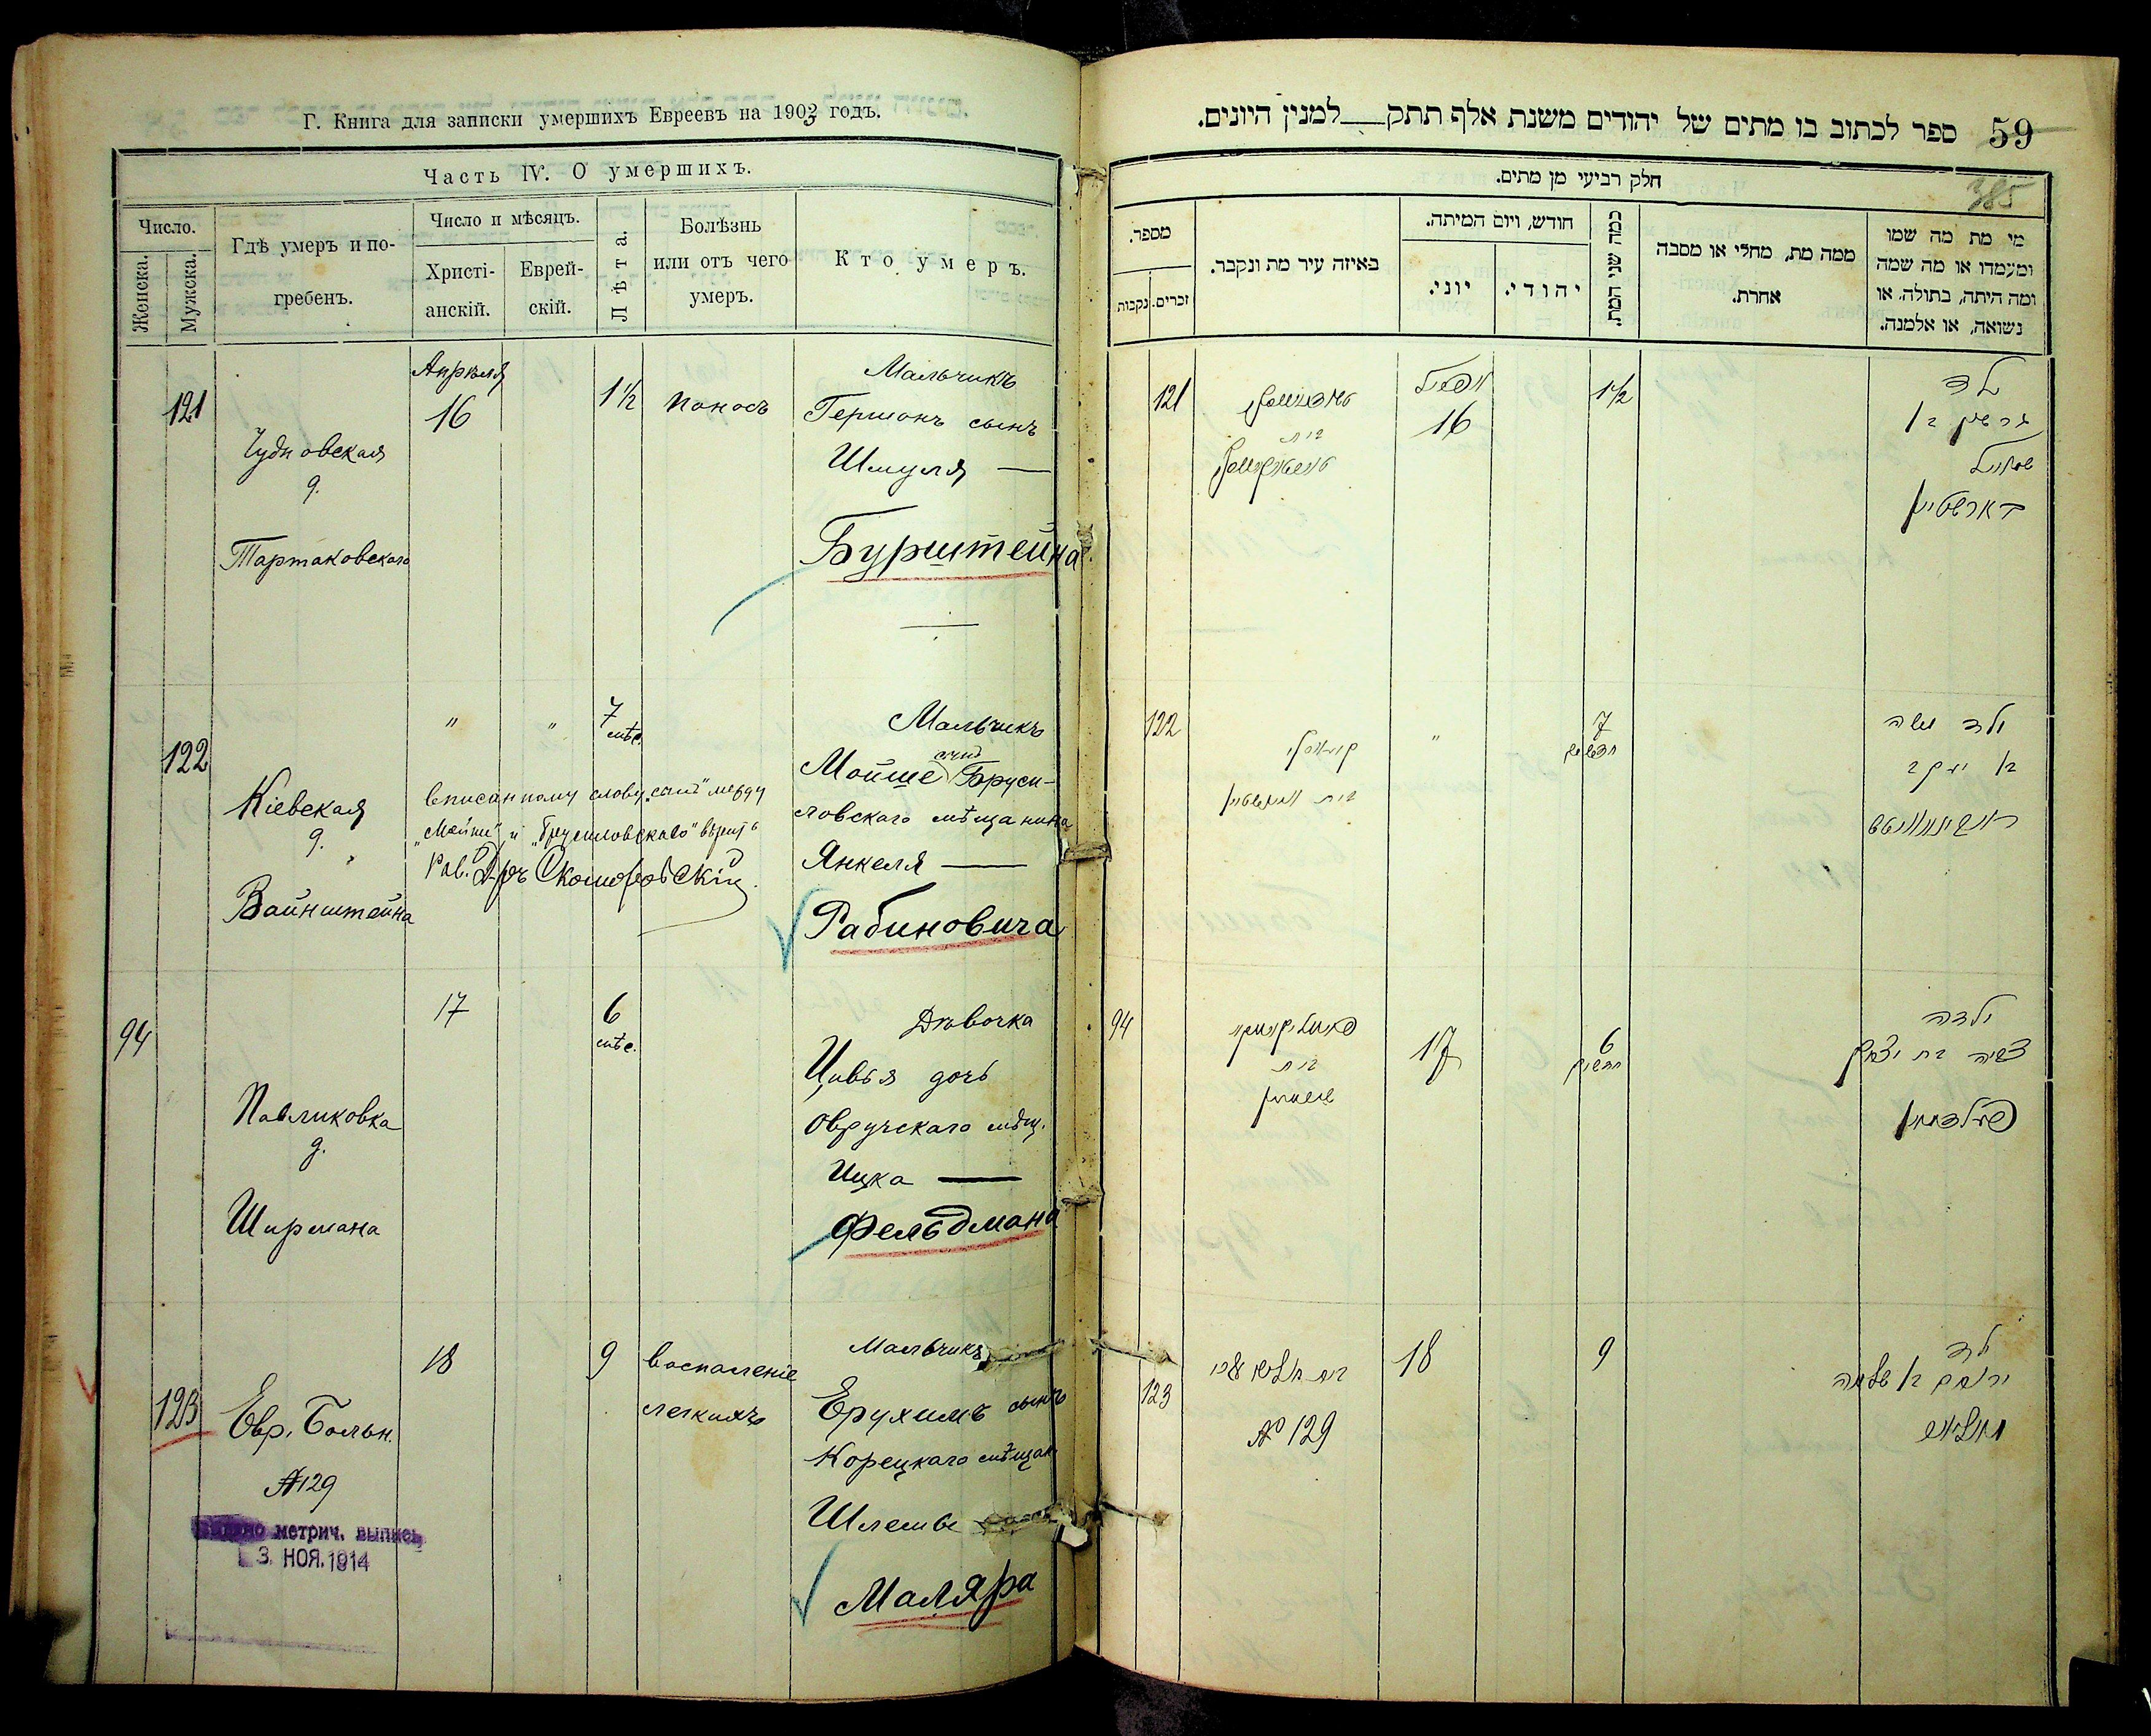 Г. Книга для записки умершихъ Евреевъ на 1903 годъ.
Часть IV. О умершихъ.
Число.
Женска.
Мужска.
Гдѣ умеръ и по-
гребенъ.
Число и мѣсяцъ.
Христі-
анскій.
Еврей-
скій.
Лѣта.
Болѣзнь
или отъ чего
умеръ.
Кто умеръ.
121
Чудновская
д.
Тартаковскаго
Апрѣля
16
1½
Поносъ
Мальчикъ
Гершонъ сынъ
Шмуля —
Бурштейна
122
Кіевская
д.
Вайнштейна
" "
7
мѣс.
Вписанному слову „сынъ“ между
„Мойше“ и „Брусиловскаго“ вѣрить
Рав. Д-ръ Скоморовскій
Мальчикъ
сынъ
Мойше Бруси-
ловскаго мѣщанина
Янкеля —
Рабиновича
94
Павликовка
д.
Ширмана
17
6
мѣс.
Дѣвочка
Цивья дочь
Овручскаго мѣщ.
Ицка —
Фельдмана
123
Евр. Больн.
№129
метрич. выпись
3. НОЯ. 1914
18
9
воспаленіе
легкихъ
Мальчикъ
Ерухимъ сынъ
Корецкаго мѣщан
Шлемы
Маляра
59 ספר לכתוב בו מתים של יהודים משנת אלף תתק—למנין היונים.
385
חלק רביעי מן מתים.
מספר.
זכרים.
נקבות
באיזה עיר מת ונקבר.
חודש, ויום המיתה.
יוני.
יהודי.
כמה שני המת.
ממה מת, מחלי או מסבה
אחרת.
מי מת מה שמו
ומעמדו או מה שמה
ומה היתה, בתולה, או
נשואה, או אלמנה.
121
בית
אפריל
16
1½
ילד
גרשון בן
שמואל
בארשטיין
122
"
7
חדשים
ילד משה
בן יעקב
ראבינאוויטש
בית וויינשטיין
94
בית
שירמאן
17
6
חדשים
ילדה
צביה בת יצחק
פעלדמאן
123
№ 129
18
9
ילד
ירוחם בן שלמה
מאליאר